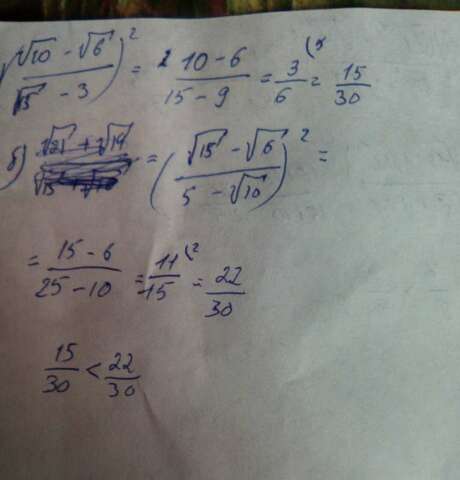 (√10 - √6 / √15 - 3)² = 10 - 6 / 15 - 9 = 3/6 (5 = 15/30
б) = (√15 - √6 / 5 - √10)² =
= 15 - 6 / 25 - 10 = 11/15 (2 = 22/30
15/30 < 22/30